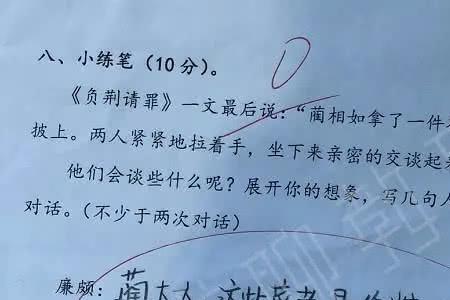 八、小练笔（10分）。
《负荆请罪》一文最后说：“蔺相如拿了一件
披上。两人紧紧地拉着手，坐下来亲密的交谈起来
他们会谈些什么呢？展开你的想象，写几句人
对话。（不少于两次对话）
廉颇：蔺大人